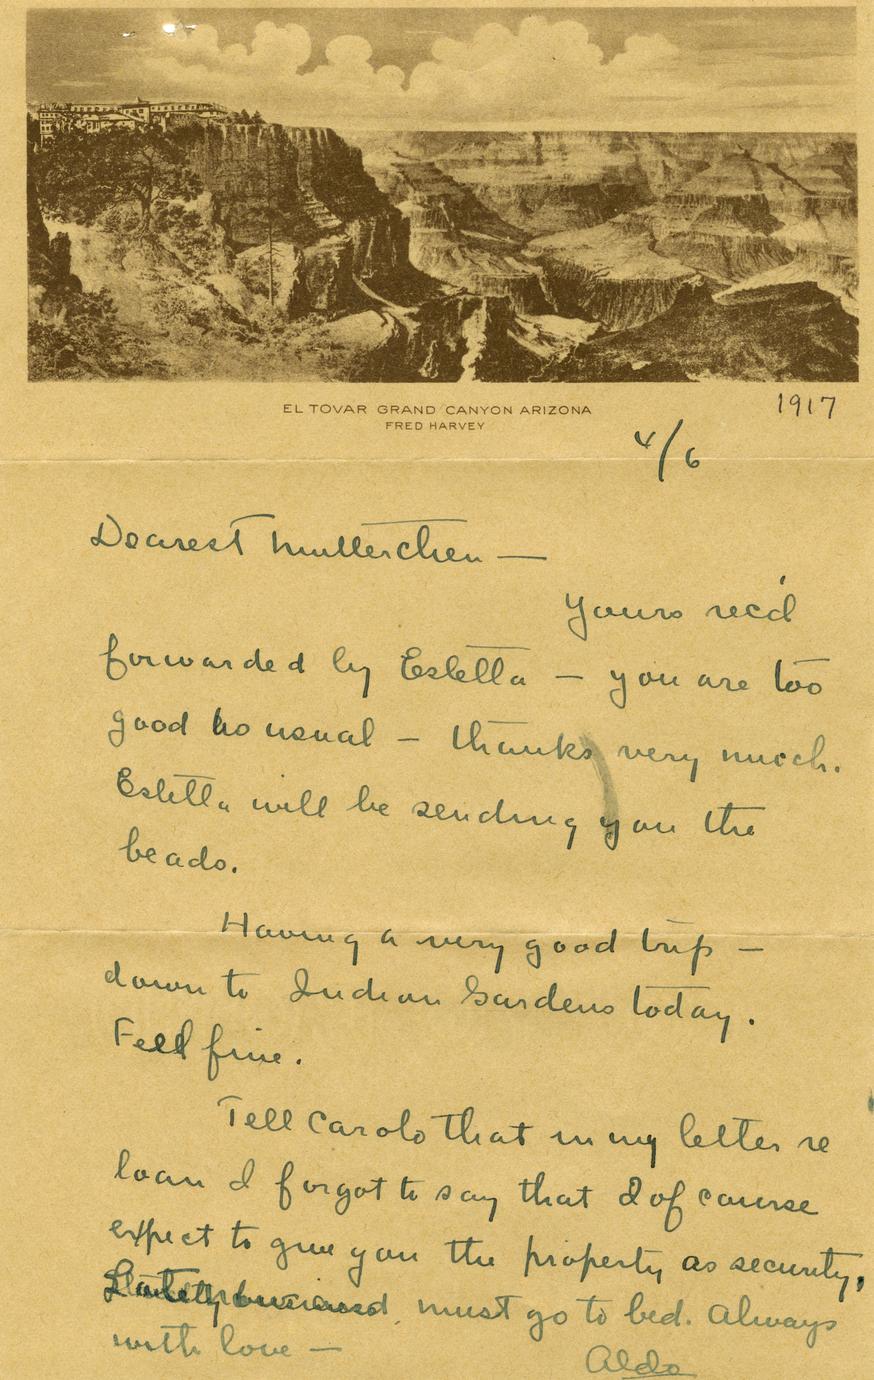 EL TOVAR GRAND CANYON ARIZONA
FRED HARVEY
1917
4/6
Dearest Mutterchen —
Yours rec'd
forwarded by Estella — you are too
good as usual — thanks very much.
Estella will be sending you the
beads.
Having a very good trip —
down to Indian Gardens today.
Feel fine.
Tell Carolo that in my letter re
loan I forgot to say that I of course
expect to give you the property as security.
must go to bed. Always
with love —
Aldo